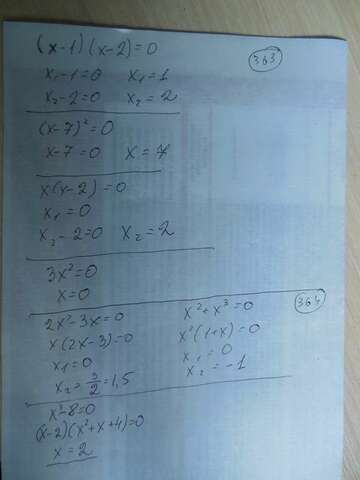 (x-1)(x-2)=0
363
x₁-1=0 x₁=1
x₂-2=0 x₂=2
(x-7)²=0
x-7=0 x=7
x(x-2)=0
x₁=0
x₂-2=0 x₂=2
3x²=0
x=0
364
2x²-3x=0
x(2x-3)=0
x₁=0
x₂=3/2=1,5
x²+x³=0
x²(1+x)=0
x₁=0
x₂=-1
x³-8=0
(x-2)(x²+x+4)=0
x=2